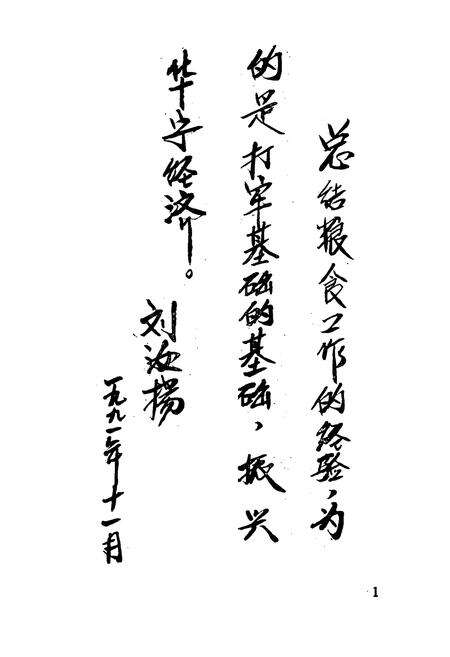 总结粮食工作的经验，为
的是打牢基础的基础，振兴
华宁经济。
刘汝揚
一九九一年十一月
1